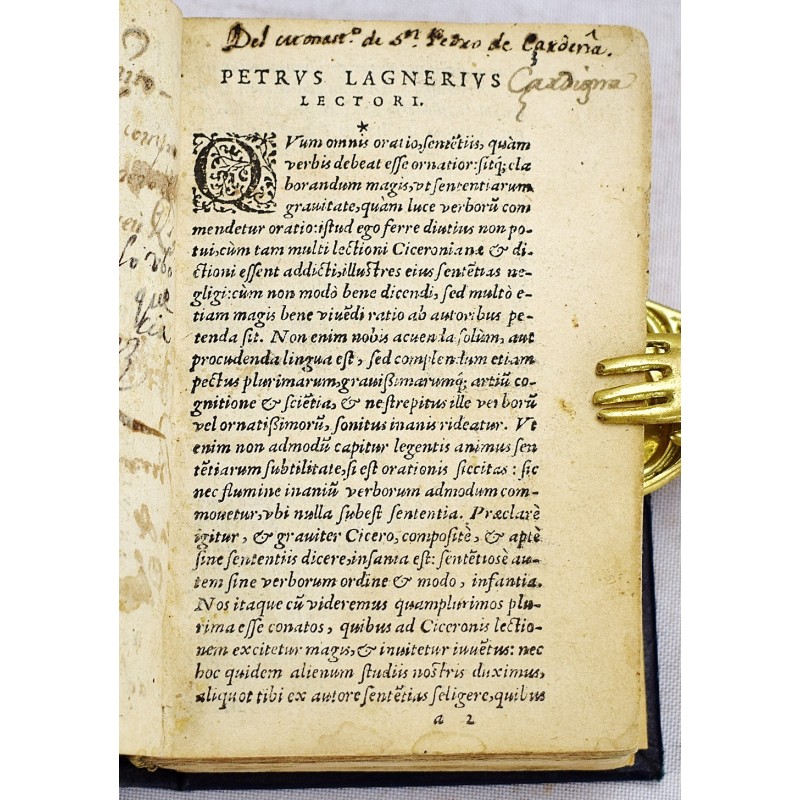 Del monast.º de S.n Pedro de Cardeña.
PETRVS LAGNERIVS
Cardigna
LECTORI.
*
QVum omnis oratio, sentẽtiis, quàm
verbis debeat esse ornatior: sitq́; ela
borandum magis, vt sententiarum
grauitate, quàm luce verborũ com
mendetur oratio: istud ego ferre diutius non po-
tui, cùm tam multi lectioni Ciceronianæ & di-
ctioni essent addicti, illustres eius sentẽtias ne-
gligi: cùm non modò bene dicendi, sed multò e-
tiam magis bene viuẽdi ratio ab autoribus pe-
tenda sit. Non enim nobis acuenda solùm, aut
procudenda lingua est, sed complendum etiam
pectus plurimarum, grauißimarumq́; artiũ co-
gnitione & sciẽtia, & ne strepitus ille verborũ
vel ornatißimorũ, sonitus inanis rideatur. Vt
enim non admodũ capitur legentis animus sen
tẽtiarum subtilitate, si est orationis siccitas: sic
nec flumine inaniũ verborum admodum com-
mouetur, vbi nulla subest sententia. Præclarè
igitur, & grauiter Cicero, compositè, & aptè
sine sententiis dicere, insania est: sentẽtiosè au-
tem sine verborum ordine & modo, infantia.
Nos itaque cũ videremus quamplurimos plu-
rima esse conatos, quibus ad Ciceronis lectio-
nem excitetur magis, & inuitetur iuuẽtus: nec
hoc quidem alienum studiis nostris duximus,
aliquot tibi ex autore sentẽtias seligere, quibus
a 2